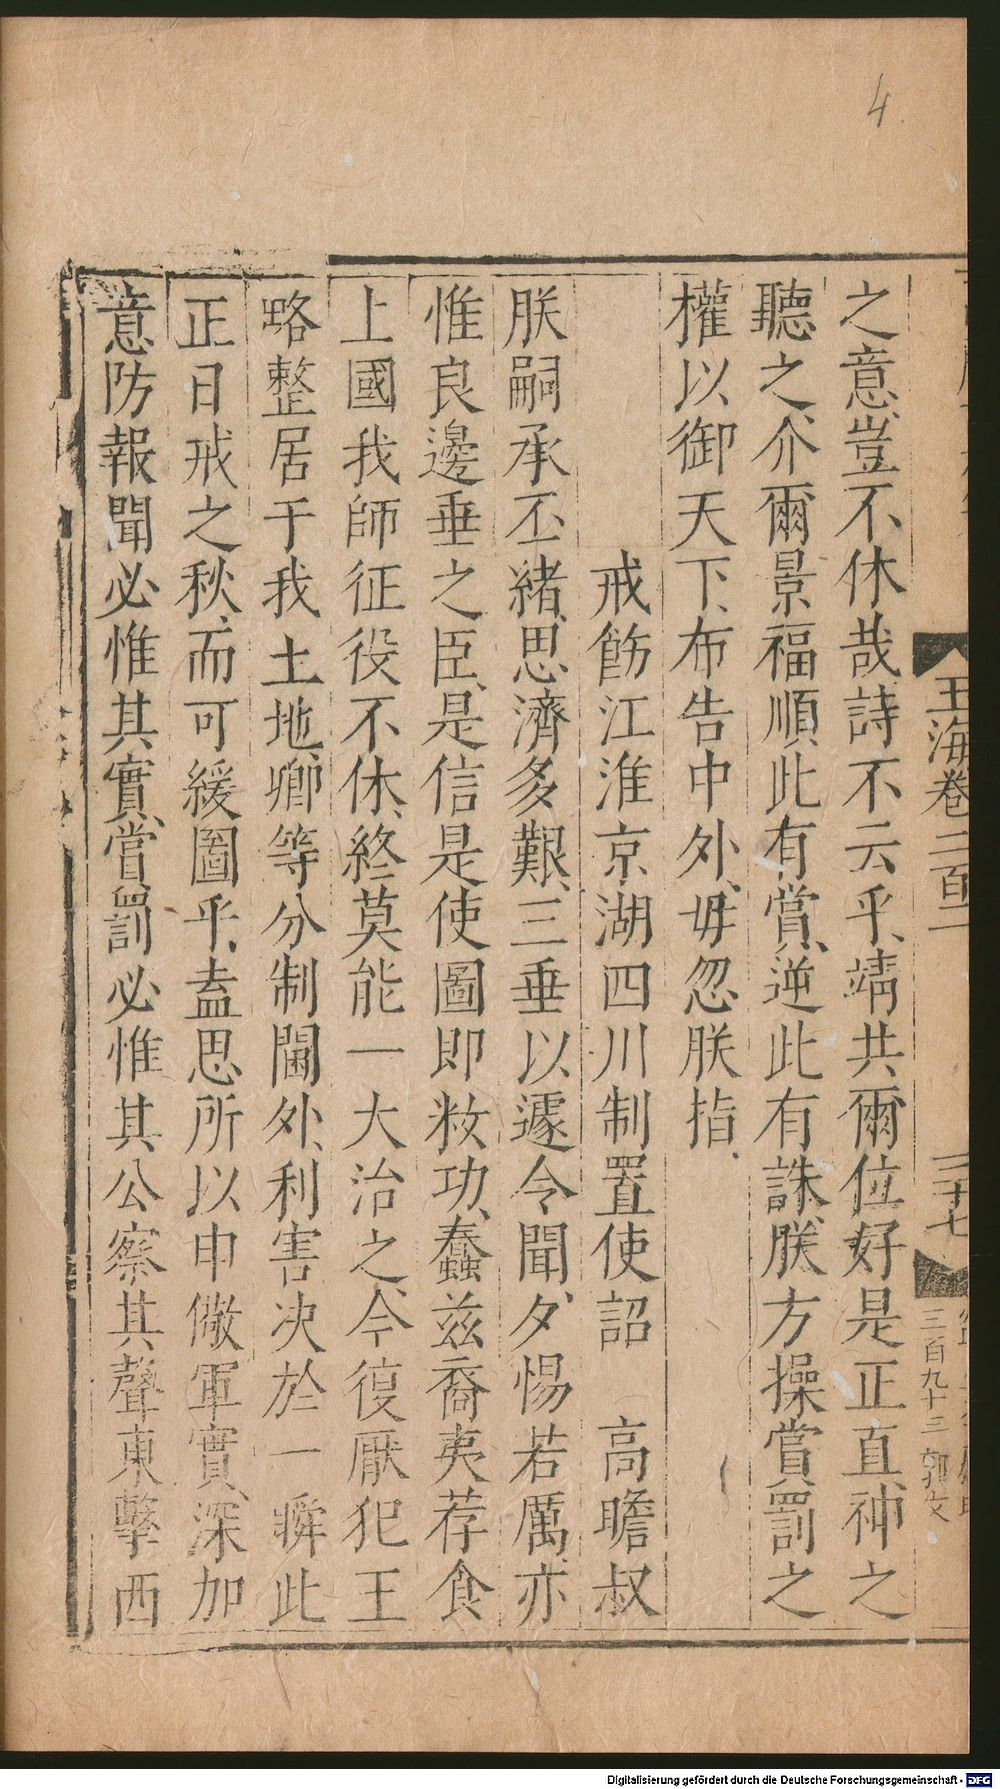 4
玉海卷二百二
二十七
三百九十三
之意豈不休哉詩不云乎靖共爾位好是正直神之
聽之介爾景福順此有賞逆此有誅朕方操賞罰之
權以御天下布告中外毋忽朕指
戒飭江淮京湖四川制置使詔 高瞻叔
朕嗣承丕緒思濟多艱三垂以遽令聞夕惕若厲亦
惟良邊垂之臣是信是使圖即敉功蠢兹裔夷荐食
上國我師征役不休終莫能一大治之今復厭犯王
略整居于我土地卿等分制閫外利害决於一瞬此
正日戒之秋而可緩圖乎盍思所以申儆軍實深加
意防報聞必惟其實賞罰必惟其公察其聲東擊西
Digitalisierung gefördert durch die Deutsche Forschungsgemeinschaft - DFG